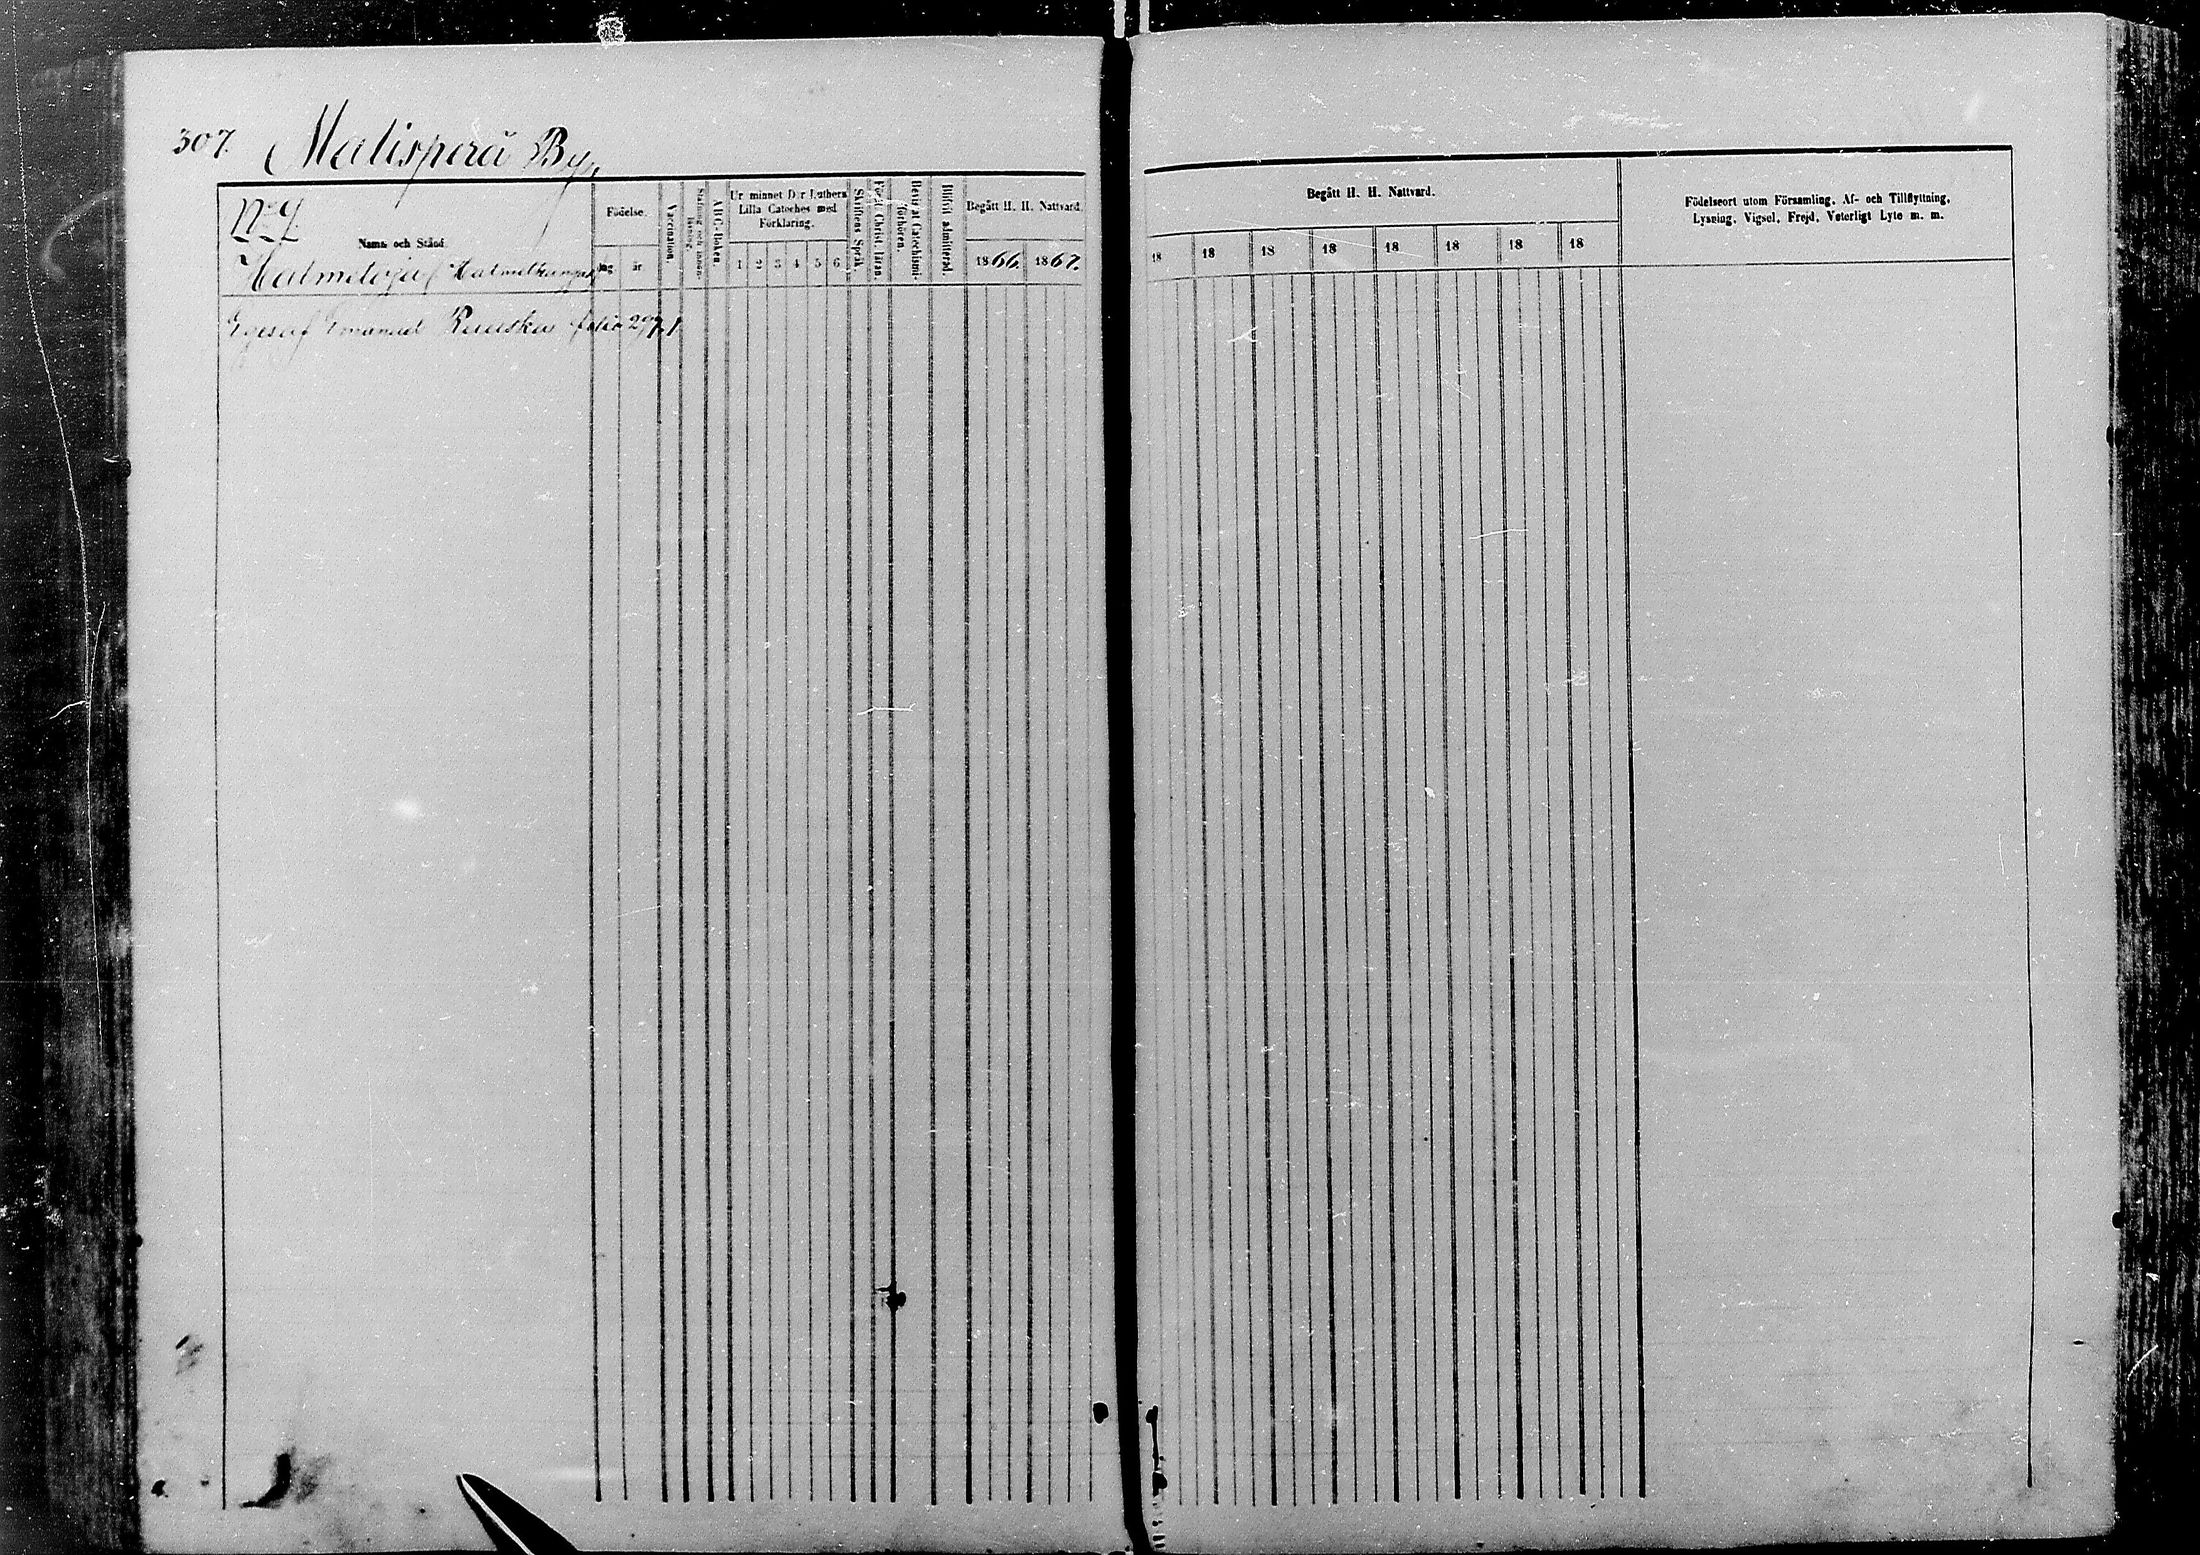 307. Matisperä By.
No 7.
Namn och Stånd.
Halmetoja
Emanuel folio 297
Födelse.
dag år.
Vaccination.
Stafning och innan-läsning.
ABC-Boken.
Ur minnet D:r Luthers
Lilla Catechés med
Förklaring.
1 2 3 4 5 6
Skriftens Språk.
Först. Christ. läran
Bevistat Catechismi-
förhören.
Blifvit admitterad.
Begått H. H. Nattvard.
1866. 1867.
Begått H. H. Nattvard.
18 18 18 18 18 18 18 18
Födelseort utom Församling, Af- och Tillflyttning,
Lysning, Vigsel, Frejd, Veterligt Lyte m. m.